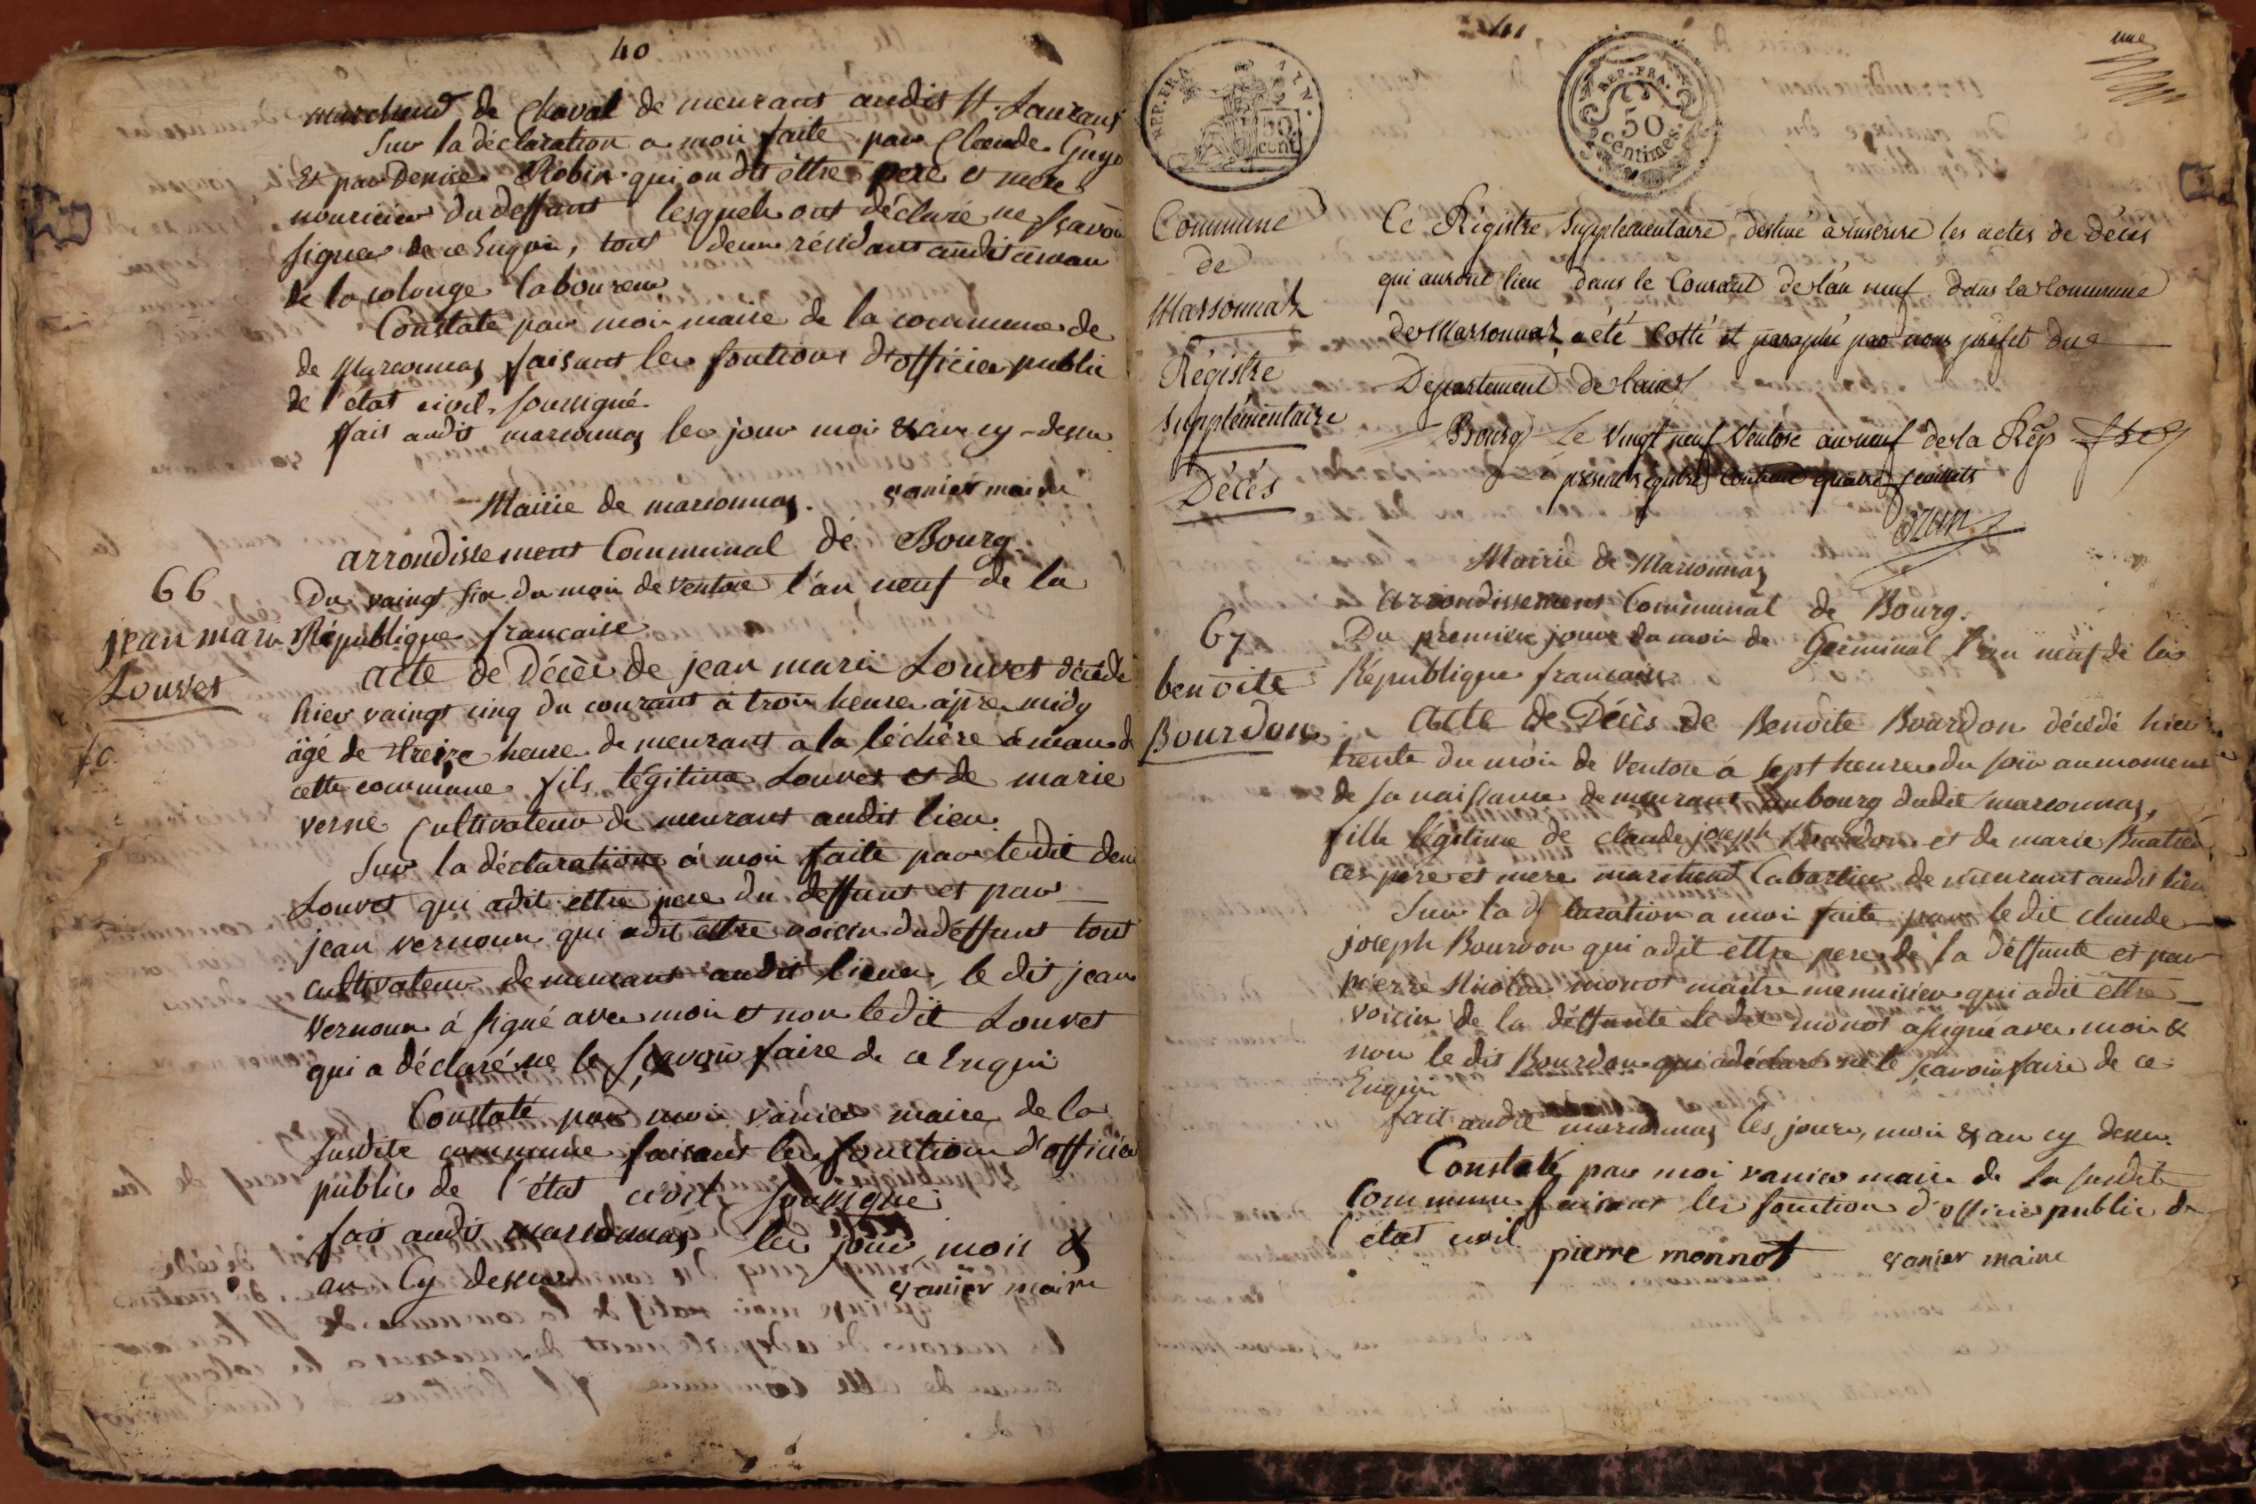 40
marchand de Cheval de meurant audit St. Laurans
Sur la déclaration a moi faite par Claude Guyo
Et par Denise Robin qui on dit êttre pere et mere
nouricier du deffunt lesquels ont déclaré ne sçavoir
signer de ce Enquis, tout deux résidant audit amau
de la colonge laboureur
Constaté par moi maire de la commune de
de Marsonnas faisant les fontions d'officier public
de l'état civil soussigné
fait audit marsonnas les jour moi & an cy-dessu
vanier maire
Mairie de marsonnas.
arrondissement Communal de Bourg
66
jean marie
Louvet
Du vaingt six du moi de ventose l'an neuf de la
République francaise
acte de Décès de jean marie Louvet décédé
hier vaingt cinq du courant à trois heure âpre midy
âgé de treize heure de meurant a la léchère amau de
cette commune fils légitime Louvet et de marie
verne Cultivateur de meurant audit lieu.
Sur la déclaration à moi faite par le dit deni
Louvet qui adit ettre pere du deffunt et par
jean vernoux qui adit ettre voisin du déffunt tout
cultivateur demeurant audit lieux, le dit jean
vernoux à signé avec moi et non le dit Louvet
qui a déclaré ne le sçavoir faire de ce Enquis
Constaté par moi vanier maire de la
susdite commune faisant les fonction d'officier
public de l'état civil soussigné
fait audit marsonnas les jour moi &
an Cy dessus
vanier maire
41
une
REP. FRA.
50 cent.
REP. FRA.
50
Centimes.
Commune
de
Marsonnas
Régistre
Supplémentaire
Décès
Ce Régistre Supplémentaire, destiné à inserire les actes de décès
qui auront lieu dans le Courant de l'an neuf dans la Commune
de Marsonnas, a été Cotté et paraphé par nous préfet du
Departement de l'ain
Bourg Le Vingt neuf Ventose an neuf de la Rép
présent régistre Contient quatre feuillets
Mairie de Marsonnas
Arrondissement Communal de Bourg.
67
benoite
Bourdon
Du premier jour du moi de Germinal l'an neuf de la
République francaise
Acte de Décès de Benoite Bourdon décédé hier
trente du moi de Ventose à sept heure du soir au moment
de sa naissance demeurant au bourg dudit marsonnas,
fille légitime de claude joseph Bourdon et de marie
Ces pere et mere marchand Cabartier de meurant audit lieu
Sur la déclaration a moi faite par le dit claude
joseph Bourdon qui adit ettre pere de la déffunte et par
pierre Nicolas monot maitre menuisier qui adit ettre
voisin de la déffunte le dit monot a signé avec moi &
non le dit Bourdon qui adéclaré ne le sçavoir faire de ce
Enquis
fait audit marsonnas les jours, moi & an cy dessu.
Constaté par moi vanier maire de la susdite
Commune faisant les fonction d'officier public de
l'état civil
pierre monnot vanier maire